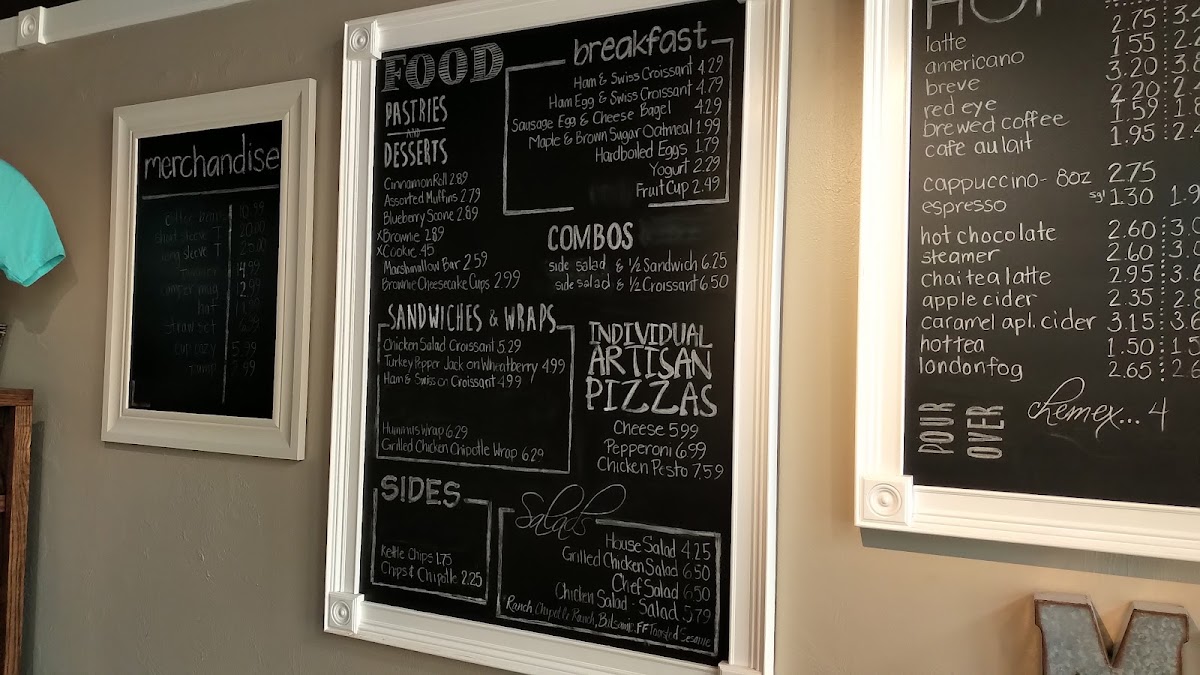 merchandise
coffee beans 10.99
short sleeve T 20.00
long sleeve T 25.00
4.99
camper mug 12.99
hat
straw set 6.99
cup cozy 5.99
FOOD
PASTRIES
AND
DESSERTS
Cinnamon Roll 2.89
Assorted Muffins 2.79
Blueberry Scone 2.89
x Brownie 2.89
x Cookie .45
Marshmallow Bar 2.59
Brownie Cheesecake Cups 2.99
breakfast
Ham & Swiss Croissant 4.29
Ham Egg & Swiss Croissant 4.79
Sausage Egg & Cheese Bagel 4.29
Maple & Brown Sugar Oatmeal 1.99
Hardboiled Eggs 1.79
Yogurt 2.29
Fruit Cup 2.49
COMBOS
side salad & ½ Sandwich 6.25
side salad & ½ Croissant 6.50
SANDWICHES & WRAPS
Chicken Salad Croissant 5.29
Turkey Pepper Jack on Wheatberry 4.99
Ham & Swiss on Croissant 4.99
Hummus Wrap 6.29
Grilled Chicken Chipotle Wrap 6.29
INDIVIDUAL
ARTISAN
PIZZAS
Cheese 5.99
Pepperoni 6.99
Chicken Pesto 7.59
SIDES
Kettle Chips 1.75
Chips & Chipotle 2.25
Salads
House Salad 4.25
Grilled Chicken Salad 6.50
Chef Salad 6.50
Chicken Salad - Salad 5.79
Ranch, Chipotle Ranch, Balsamic, FF Toasted Sesame
HOT
latte 2.75
americano 1.55
breve 3.20
red eye 2.20
brewed coffee 1.59
cafe au lait 1.95
cappuccino - 8oz 2.75
espresso sgl 1.30
hot chocolate 2.60
steamer 2.60
chai tea latte 2.95
apple cider 2.35
caramel apl. cider 3.15
hot tea 1.50
london fog 2.65
POUR
OVER
chemex... 4
M